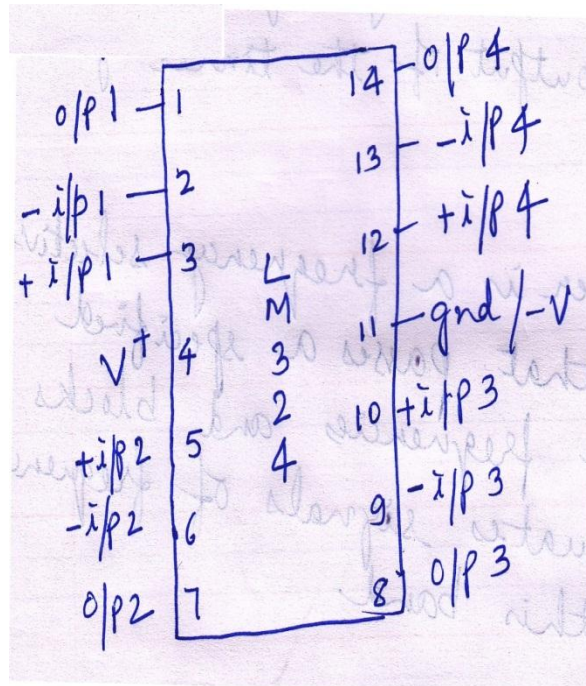 o/p1 1
-i/p1 2
+i/p1 3
V+ 4
+i/p2 5
-i/p2 6
o/p2 7
LM324
14 o/p4
13 -i/p4
12 +i/p4
11 gnd/-V
10 +i/p3
9 -i/p3
8 o/p3